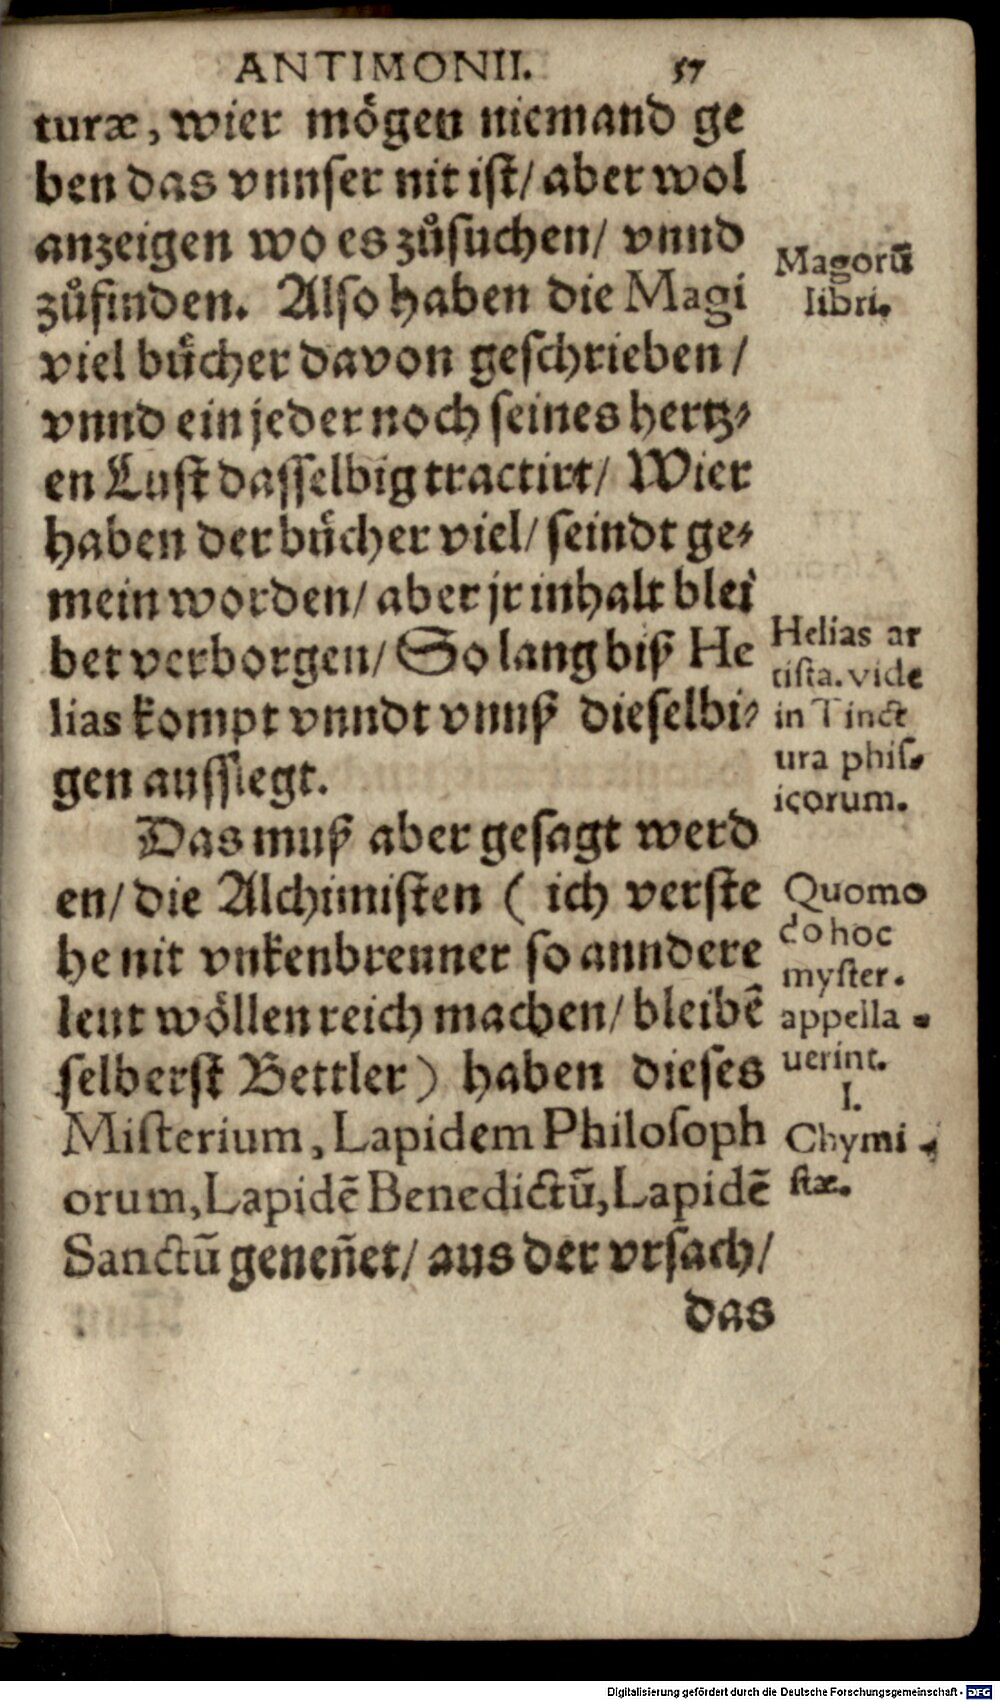 ANTIMONII. 57
turæ, wier mögen niemand ge
ben das vnnser nit ist/ aber wol
anzeigen wo es zůsuchen/ vnnd
zůfinden. Also haben die Magi
viel bůcher davon geschrieben/
vnnd ein jeder noch seines hertz⸗
en Lust dasselbig tractirt/ Wier
haben der bůcher viel/ seindt ge⸗
mein worden/ aber jr inhalt blei
bet verborgen/ So lang biß He
lias kompt vnndt vnnß dieselbi⸗
gen ausslegt.
Das muß aber gesagt werd
en/ die Alchimisten ( ich verste
he nit vnkenbrenner so anndere
leut wöllen reich machen/ bleibē
selberst Bettler) haben dieses
Misterium, Lapidem Philosoph
orum, Lapidē Benedictū, Lapidē
Sanctū geneñet/ aus der vrsach/
das
Magorū
libri.
Helias ar
tista. vide
in Tinct
ura phis⸗
icorum.
Quomo
do hoc
myster.
appella⸗
uerint.
I.
Chymi⸗
stæ.
Digitalisierung gefördert durch die Deutsche Forschungsgemeinschaft - DFG